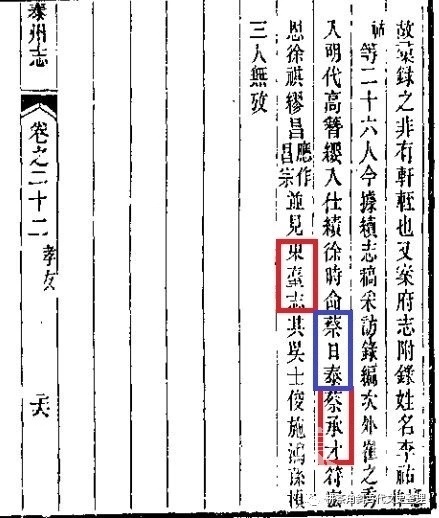 故彙錄之非有軒輊也又案府志附錄姓名李祐
等二十六人今據續志稿采訪錄編次外崔之秀
入明代高簪纓入仕績徐時侖蔡日泰蔡承才符
恩徐祺繆昌應作昌宗並見東臺志其吳士俊施鴻孫
三人無攷
泰州志
卷之二十二
孝友